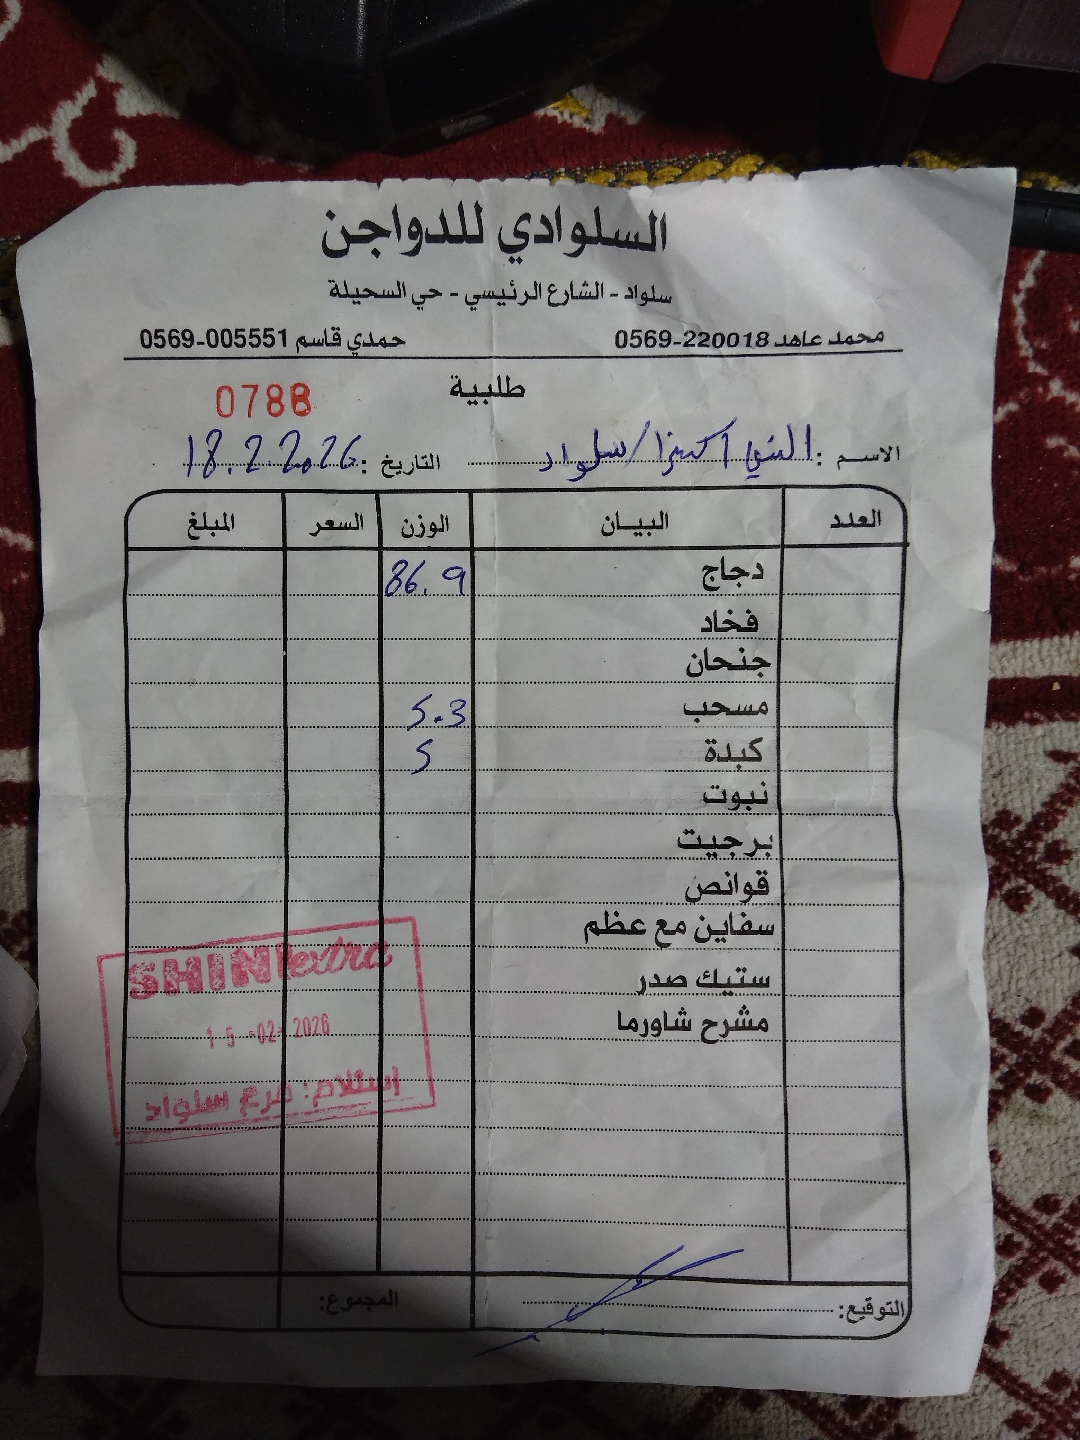 السلوادي للدواجن
سلواد - الشارع الرئيسي - حي السحيلة
محمد عاهد 0569-220018 حمدي قاسم 0569-005551
طلبية 0788
الاسم: الشني اكسترا/سلواد التاريخ: 18.2.2026
العدد البيـان الوزن السعر المبلغ
دجاج 86.9
فخاد
جنحان
مسحب 5.3
كبدة 5
نبوت
برجيت
قوانص
سفاين مع عظم
ستيك صدر
مشرح شاورما
SHINI extra
15-02-2026
إستلام: فرع سلواد
التوقيع: المجموع: